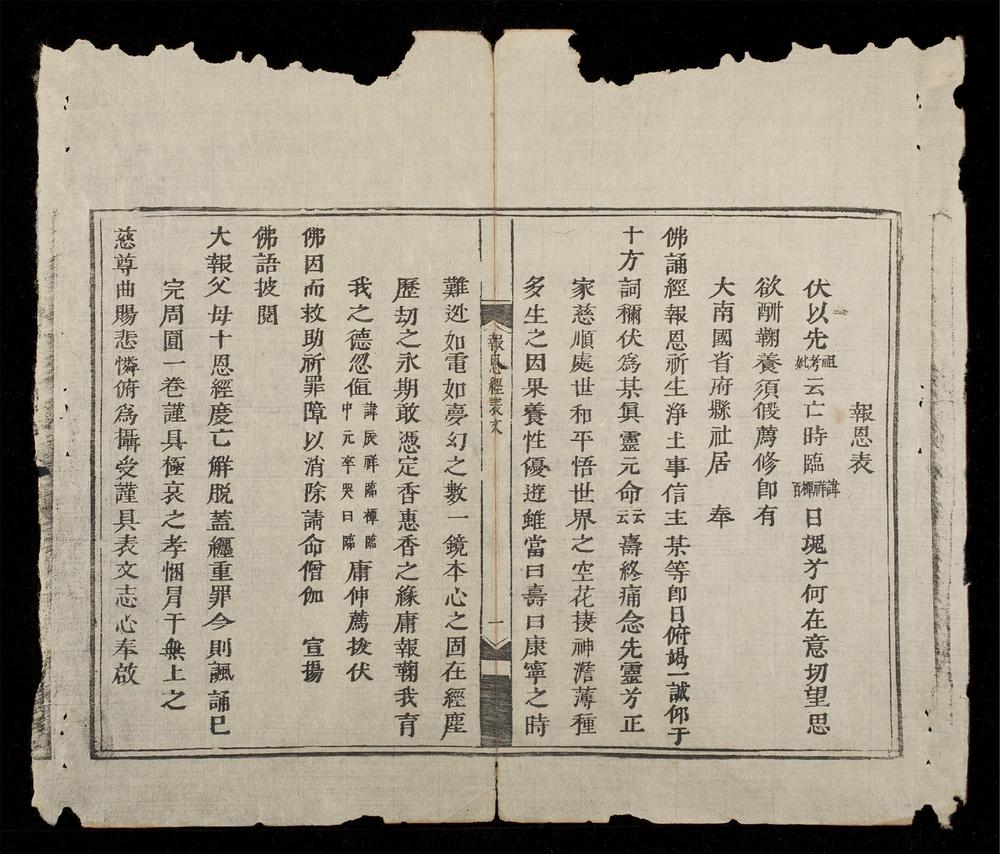 報恩表
伏以先祖考妣云亡時臨諱祥禫百日魂兮何在意切望思
欲酧鞠養須假薦修卽有
大南國省府縣社居 奉
佛誦經報恩祈生淨土事信主某等卽日俯竭一誠仰于
十方詞稱伏為某眞靈元命云云壽終痛念先靈方正
家慈順處世和平悟世界之空花捿神澹薄種
多生之因果養性優遊雖當曰壽曰康寧之時
報恩經表文
一
難迯如電如夢幻之數一鏡本心之固在經塵
歷劫之永期敢憑定香惠香之緣庸報鞠我育
我之德忽值諱辰祥臨禫臨中元卒哭日臨庸伸薦拔伏
佛因而救助祈罪障以消除請命僧伽 宣揚
佛語披閱
大報父母十恩經度亡解脫蓋纏重罪今則諷誦已
完周圓一卷謹具極哀之孝悃冐干無上之
慈尊曲賜悲憐俯為攝受謹具表文志心奉啟